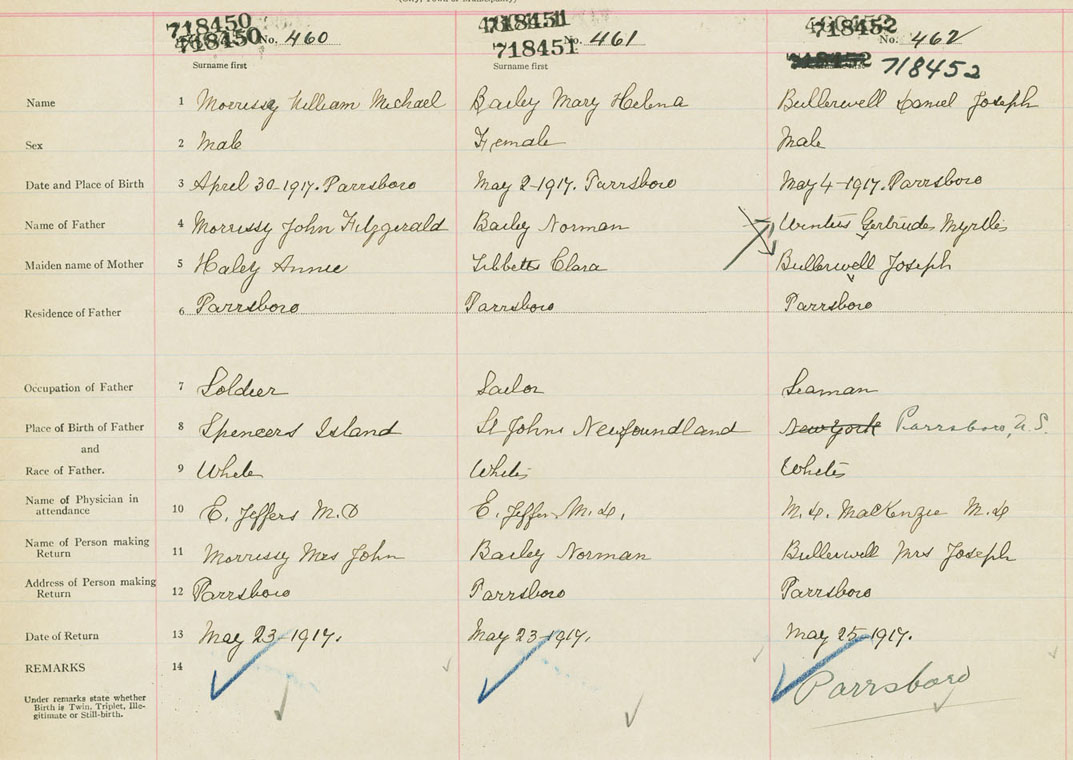 (City, Town or Municipality)
718450 718451 718452
718450 No. 460 718451 No. 461 No. 462
718452
Surname first Surname first
Name 1 Morrissy William Michael Bailey Mary Helena Bullerwell Daniel Joseph
Sex 2 Male Female Male
Date and Place of Birth 3 April 30-1917. Parrsboro May 2-1917. Parrsboro May 4-1917. Parrsboro
Name of Father 4 Morrissy John Fitzgerald Bailey Norman Winters Gertrude Myrtle
Maiden name of Mother 5 Haley Annie Tibbetts Clara Bullerwell Joseph
Residence of Father 6 Parrsboro Parrsboro Parrsboro
Occupation of Father 7 Soldier Sailor Seaman
Place of Birth of Father 8 Spencers Island St Johns Newfoundland New York Parrsboro, N.S.
and
Race of Father. 9 White White White
Name of Physician in
attendance 10 E. Jeffers M.D E. Jeffers M.D. M.D. MacKenzie M.D
Name of Person making
Return 11 Morrissy Mrs John Bailey Norman Bullerwell Mrs Joseph
Address of Person making
Return 12 Parrsboro Parrsboro Parrsboro
Date of Return 13 May 23-1917. May 23-1917. May 25-1917.
REMARKS 14 Parrsboro
Under remarks state whether
Birth is Twin, Triplet, Ille-
gitimate or Still-birth.